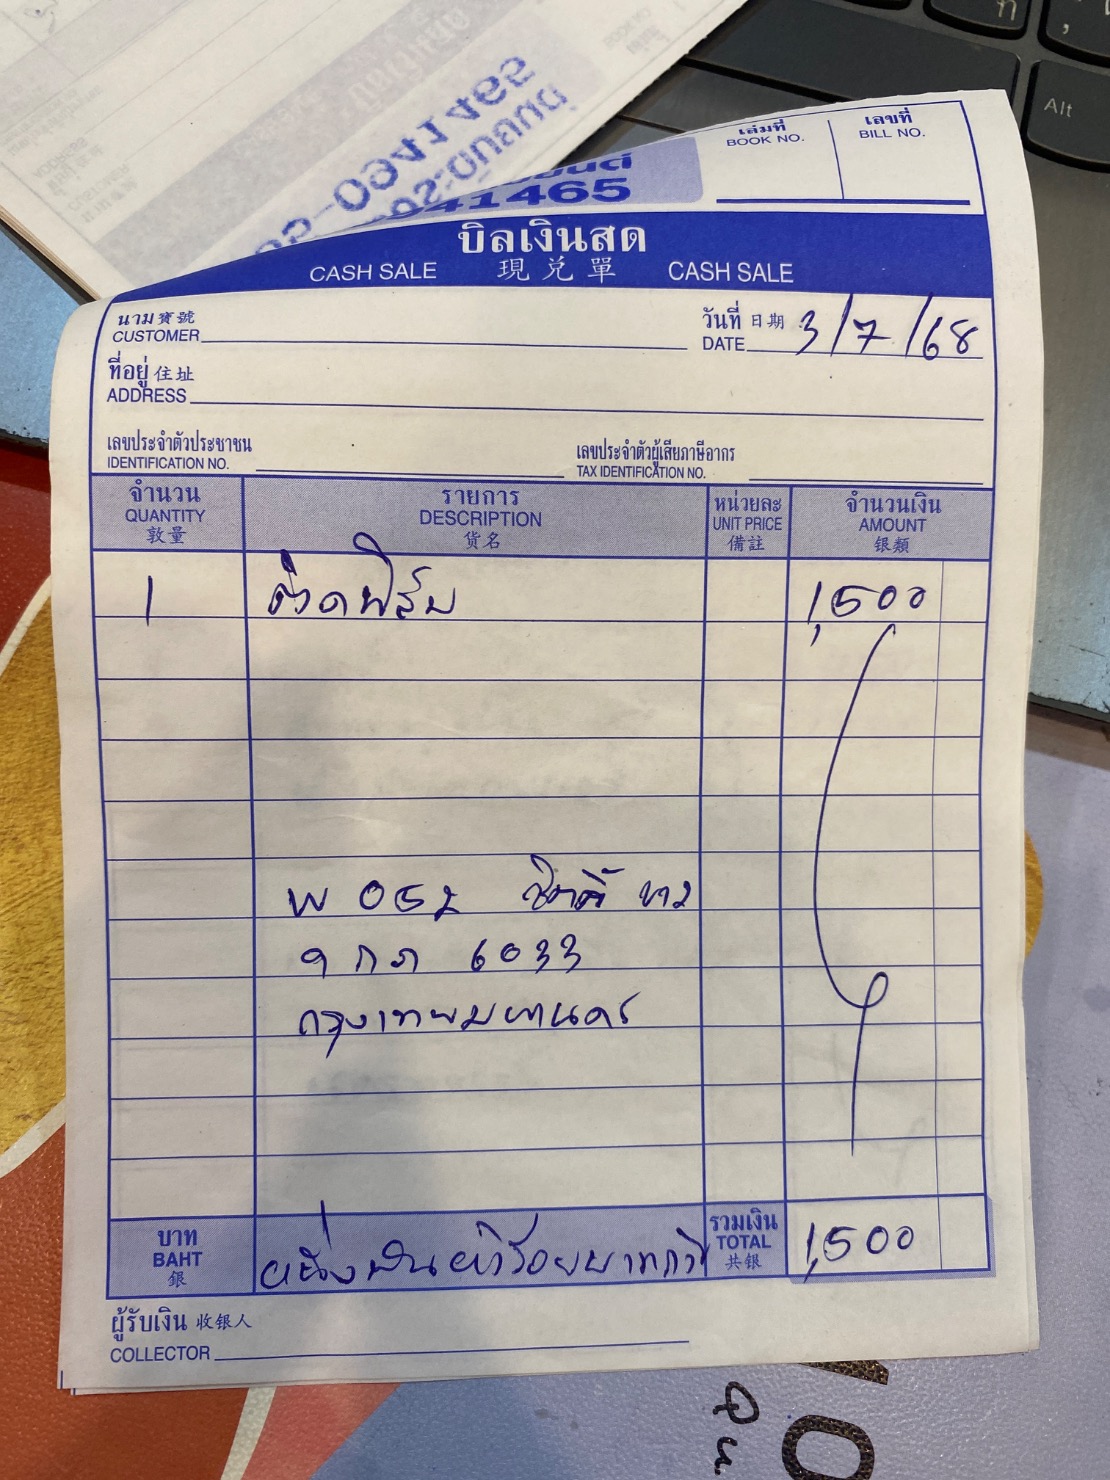 เล่มที่ เลขที่
BOOK NO. BILL NO.
041465
บิลเงินสด
CASH SALE 現兑單 CASH SALE
นาม寶號 วันที่ 日期 3/7/68
CUSTOMER DATE
ที่อยู่ 住址
ADDRESS
เลขประจำตัวประชาชน เลขประจำตัวผู้เสียภาษีอากร
IDENTIFICATION NO. TAX IDENTIFICATION NO.
จำนวน รายการ หน่วยละ จำนวนเงิน
QUANTITY DESCRIPTION UNIT PRICE AMOUNT
敦量 货名 備註 银類
1 ติดฟิล์ม 1,500
W 052 ซิตี้ ขาว
9 กภ 6033
กรุงเทพมหานคร
บาท หนึ่งพันห้าร้อยบาทถ้วน รวมเงิน 1,500
BAHT TOTAL
銀 共银
ผู้รับเงิน 收银人
COLLECTOR
Alt